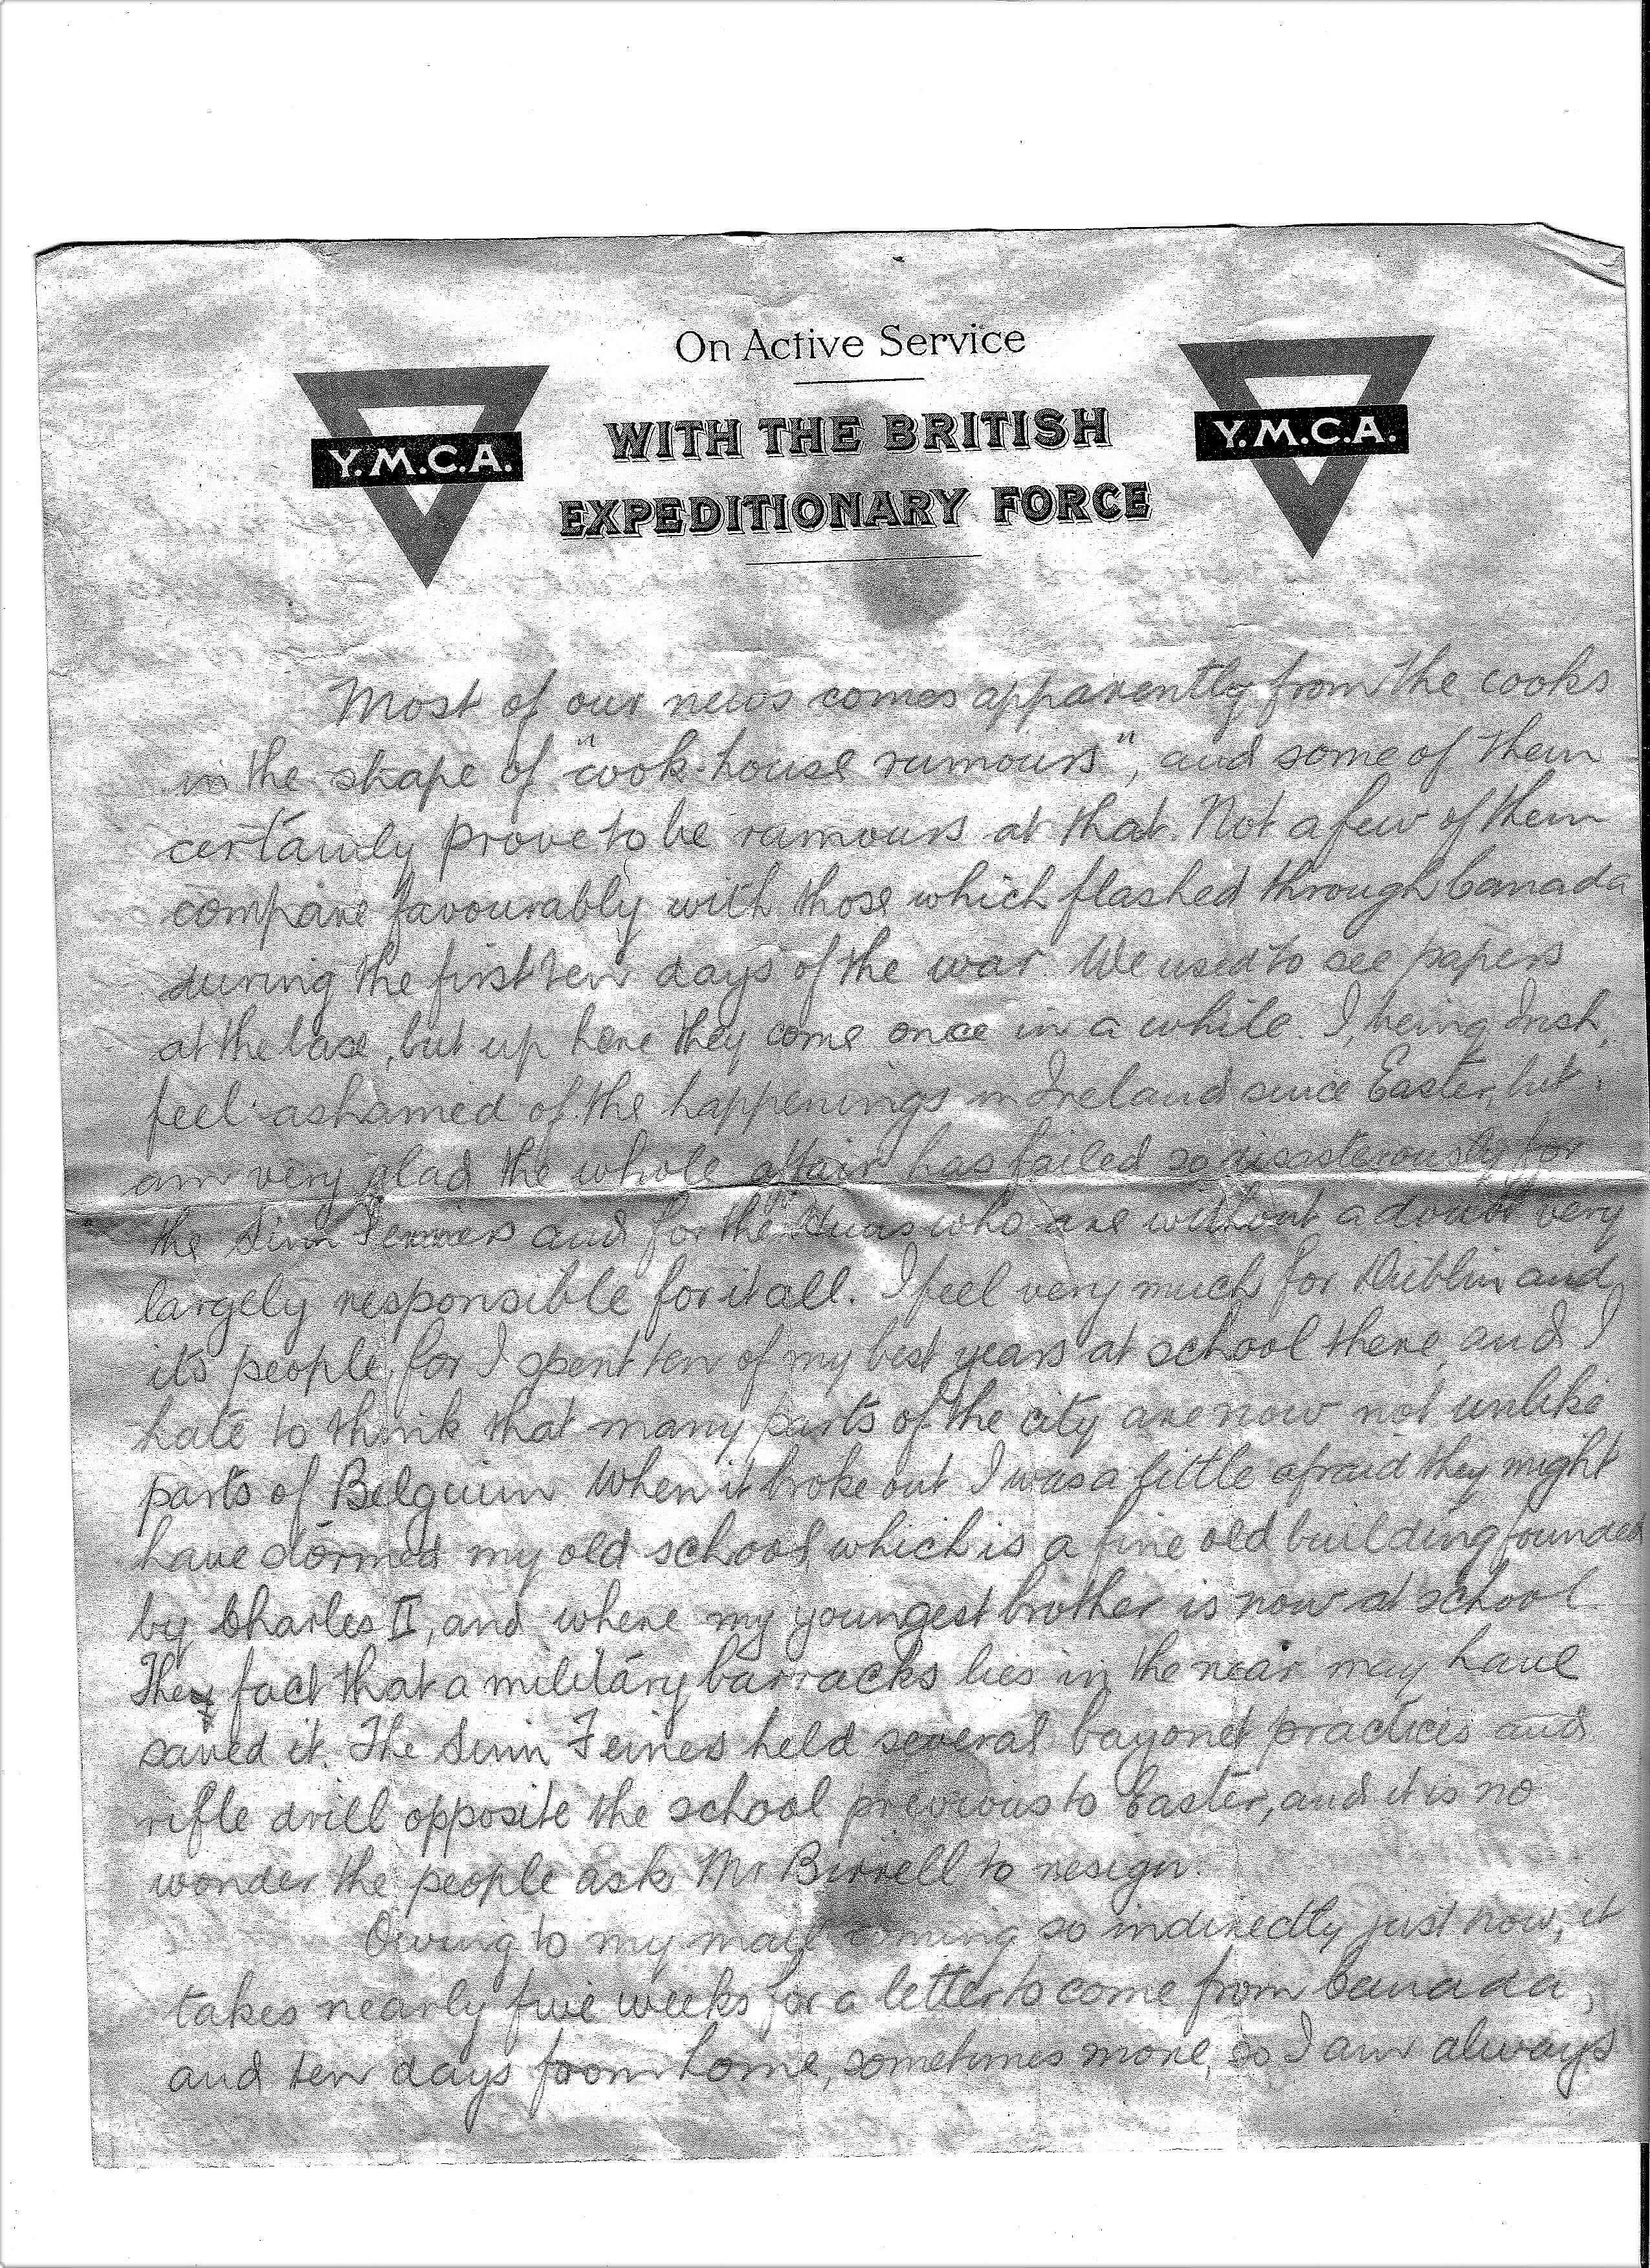 On Active Service
Y.M.C.A.
WITH THE BRITISH
EXPEDITIONARY FORCE
Y.M.C.A.
Most of our news comes apparently from the cooks
in the shape of "cook-house rumours", and some of them
certainly prove to be rumours at that. Not a few of them
compare favourably with those which flashed through Canada
during the first ten days of the war. We used to see papers
at the base, but up here they come once in a while. I, being Irish,
feel ashamed of the happenings in Ireland since Easter, but
am very glad the whole affair has failed so disasterously for
the Sinn Feiners and for the Huns who are without a doubt very
largely responsible for it all. I feel very much for Dublin and
its people, for I spent ten of my best years at school there, and I
hate to think that many parts of the city are now not unlike
parts of Belgium. When it broke out I was a little afraid they might
have stormed my old school, which is a fine old building founded
by Charles II, and where my youngest brother is now at school.
The fact that a military barracks lies in the near may have
saved it. The Sinn Feiners held several bayonet practices and
rifle drill opposite the school previous to Easter, and it is no
wonder the people ask Mr Birrell to resign.
Owing to my mail coming so indirectly just now, it
takes nearly five weeks for a letter to come from Canada,
and ten days from home, sometimes more, so I am always